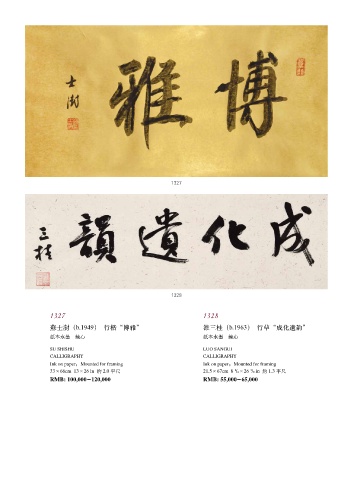 博雅
士澍
1327
成化遺韻
三桂
1328
1327
蘇士澍 (b.1949) 行楷“博雅”
紙本水墨 鏡心
SU SHISHU
CALLIGRAPHY
Ink on paper; Mounted for framing
33×66cm 13×26 in 約 2.0 平尺
RMB: 100,000—120,000
1328
羅三桂 (b.1963) 行草“成化遺韵”
紙本水墨 鏡心
LUO SANGUI
CALLIGRAPHY
Ink on paper; Mounted for framing
21.5×67cm 約 1.3 平尺
RMB: 55,000—65,000